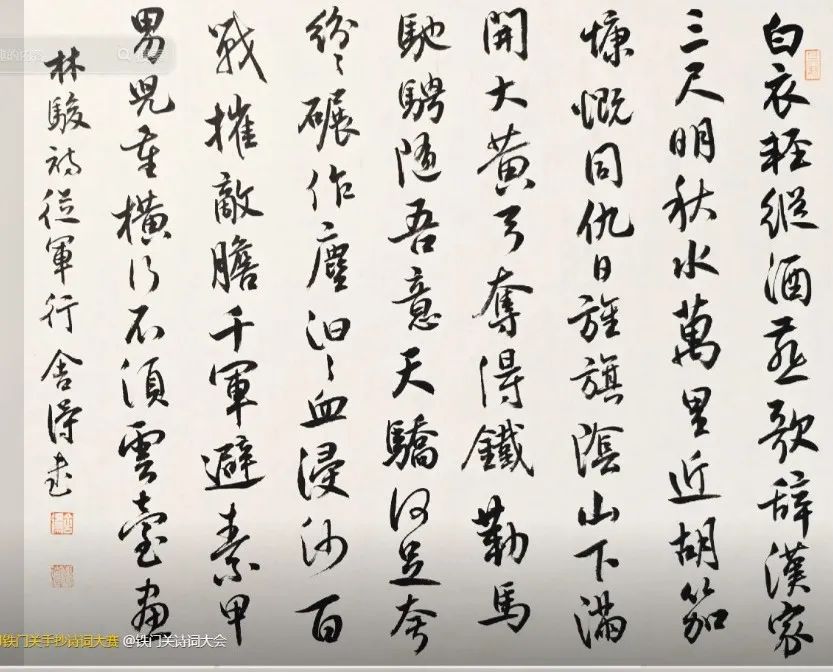 白衣輕縱酒燕歌辞漢家
三尺明秋水萬里近胡笳
慷慨同仇日旌旗陰山下滿
開大黃弓奪得鐵勒馬
馳騁隨吾意天驕何足夸
紛〻碾作塵汩〻血浸沙百
戰摧敵膽千軍避素甲
男兒重橫行不須雲臺畫
林駿詩從軍行 舍得書
铁门关手抄诗词大赛 @铁门关诗词大会